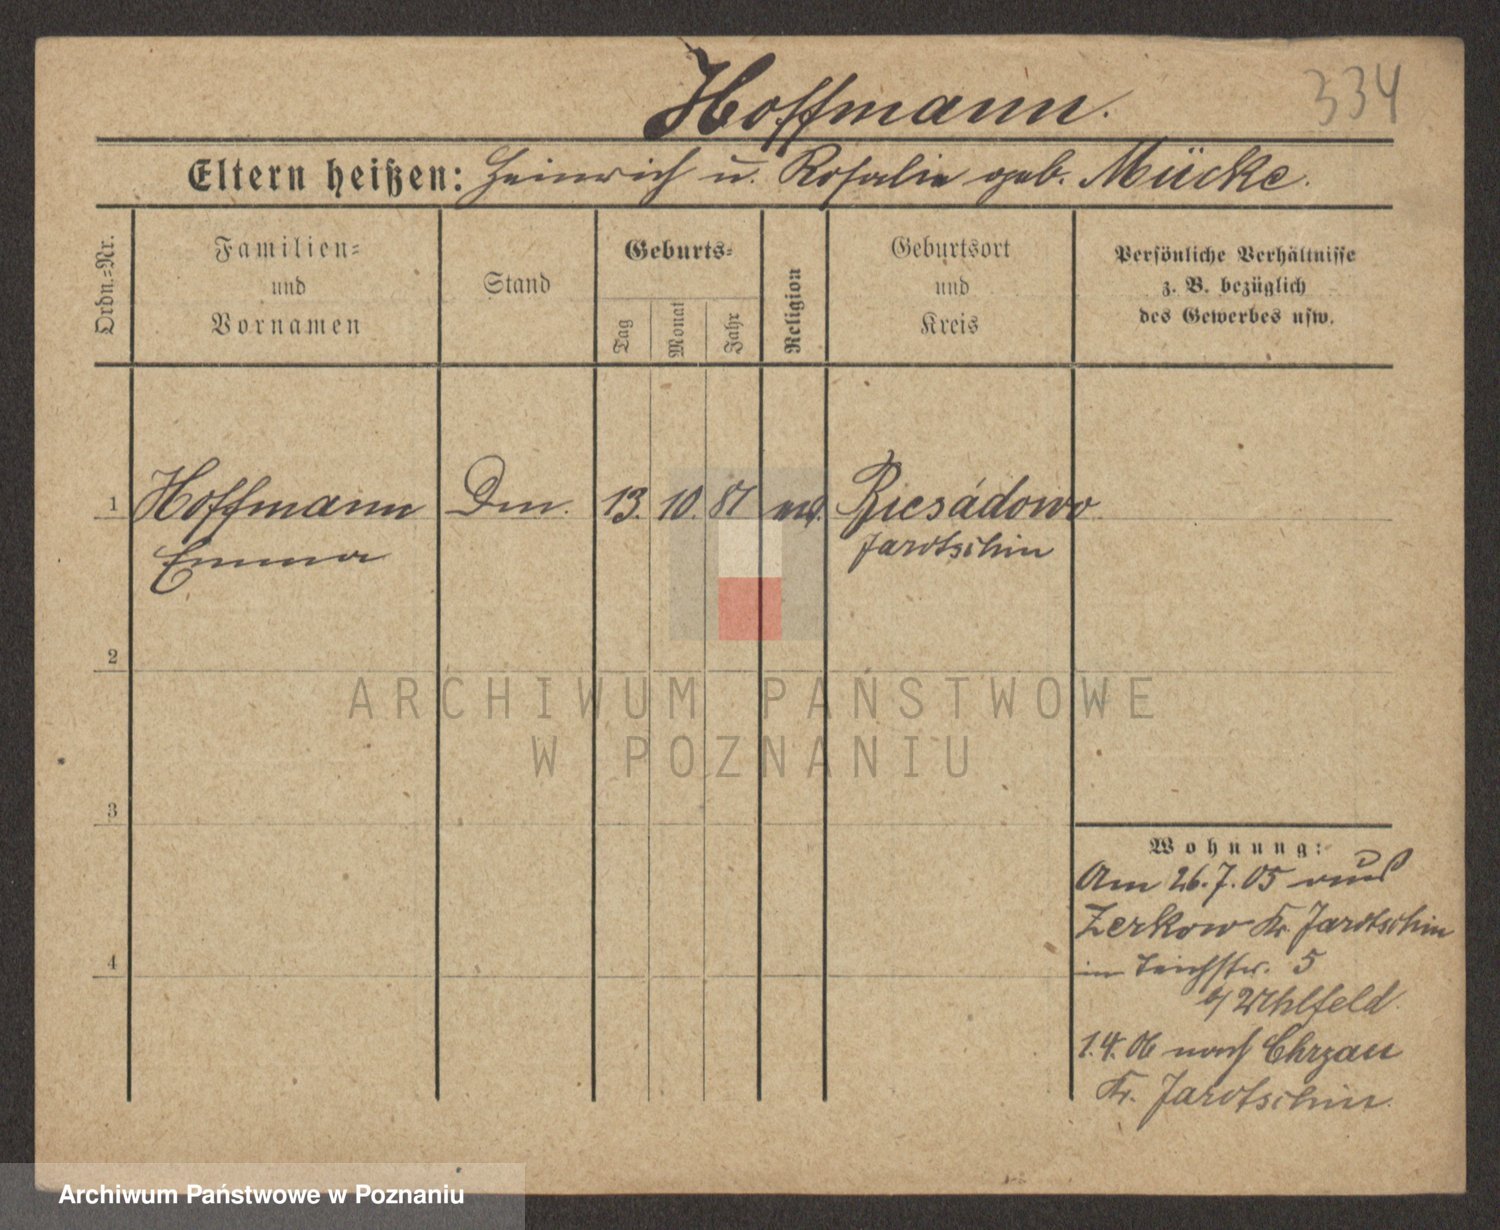 Hoffmann.
334
Eltern heißen: Heinrich u. Rosalie geb. Mücke.
Ordn.=Nr.
Familien=
und
Vornamen
Stand
Geburts=
Tag
Monat
Jahr
Religion
Geburtsort
und
Kreis
Persönliche Verhältnisse
z. B. bezüglich
des Gewerbes usw.
1
Hoffmann
Emma
13. 10. 87
Biesádowo
Jarotschin
2
ARCHIWUM PAŃSTWOWE
W POZNANIU
3
Wohnung:
Am 26.7.05 aus
Zerkow Kr. Jarotschin
in Teichstr. 5
b/ Uhlfeld.
1.4.06 nach Chrzan
Kr. Jarotschin.
4
Archiwum Państwowe w Poznaniu